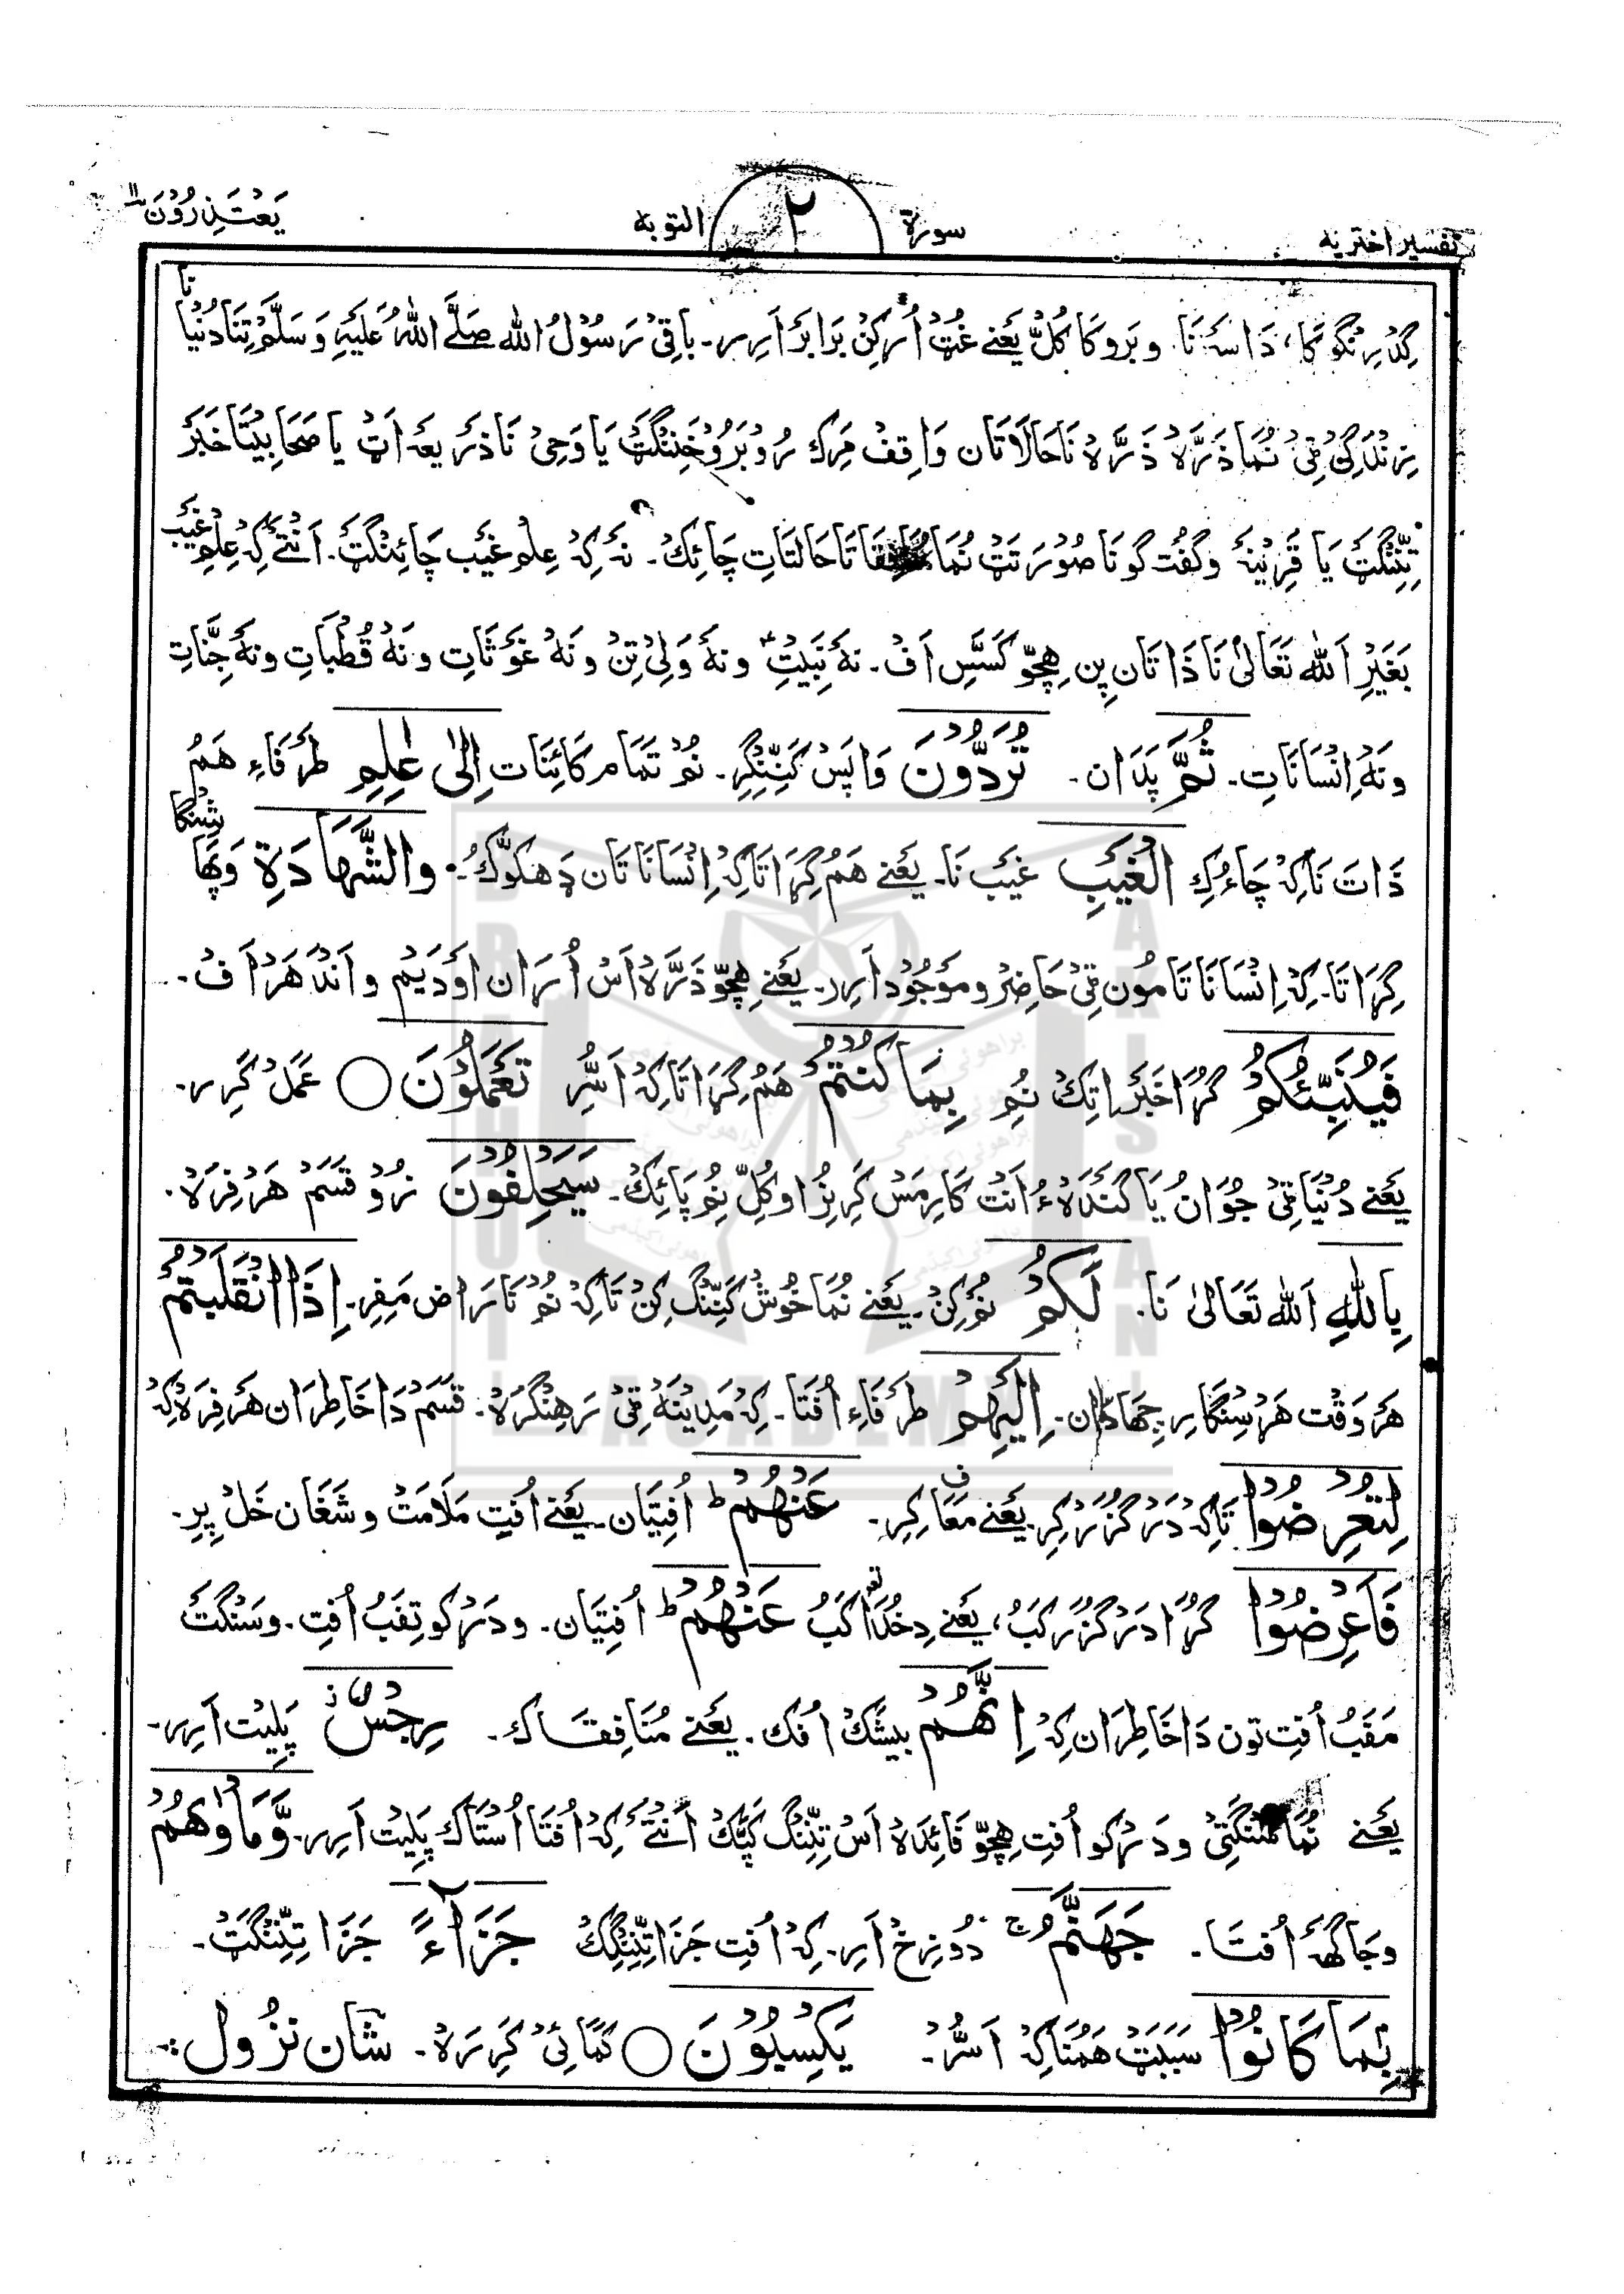 تفسیر اختریه سورة ٢ التوبه یَعْتَذِرُوْنَ ١١
گِدْرِنْگوکَا، دَاسَہ نَا. وبَروکَا کُلّ یَعْنے غُتْ اُرکِنْ بَرَابَرْ اَرِر۔ باقِیْ رَسُوْلُ اللہ صَلَّے اللہُ عَلَیْہِ وَسَلَّمْ تِنَا دُنْیَا نَا
زِنْدَگِیْ ٹِیْ نُمَا ذَرَّہْ ذَرَّہْ نَا حَالَاتَان وَاقِفْ مَرِک رُوبَرُو خَنِنْگَٹْ یَا وَحِیْ نَا ذَرِیعَہ اَٹْ یا صَحَابِیْتَا خَبَرْ
تِنِّنْگَٹْ یَا قَرِیْنَہ وگُفْت گو نَا صُوْرَتَٹْ نُمَا مُنَافِقَاتَا حَالتَاتِ چَائِکْ۔ نَہ کِہْ عِلْمِ غَیْب چَائِنْگَٹْ. اَنْتَے کِہْ عِلْمِ غَیْب
بَغَیْرِ اَللہ تَعَالیٰ نَا ذَاتَان پِن ھِچّو کَسَّسِ اَفْ۔ نَہ نَبِیْتِ ونَہ وَلِیْ تِنْ ونَہْ غَوْثَاتِ ونَہْ قُطْبَاتِ ونَہ جِنَّاتِ
ونَہْ اِنْسَانَاتِ۔ ثُمَّ پَدَان۔ تُرَدُّوْنَ وَاپَسْ کَنِنِّگِرِ۔ نُمْ تَمَام کَائِنَات اِلیٰ عٰلِمِ طَرَفَاءِ ھَمُ
ذَات نَا کِہْ چَاءُ کِ الْغَیْبِ غَیْب نَا۔ یَعْنے ھَمُ گِرَاتَا کِہْ اِنْسَانَاتَان ڈَھکوکْ۔ وَالشَّهَادَةِ وَپَھاشِنْگَا
گِرَاتَا۔ کِہْ اِنْسَانَاتَا مُون ٹِیْ حَاضِرْ ومَوْجُوْد اَرِر۔ یَعْنے ھِچّو ذَرَّہْ اَسْ اُرَان اَوْدَیْم واَنْدْھَرْ اَفْ۔
فَیُنَبِّئُکُمْ گُرَا خَبَرْ اِتِکْ نُمِ بِمَا کُنْتُمْ ھَمُ گِرَاتَا کِہْ اَسُّرِ تَعْمَلُوْنَ ○ عَمَلْ کَرِر۔
یَعْنے دُنْیَا ٹِیْ جُوَانُ یَا گَنْدَہْ ءُ اَنْتْ کَارِمَسْ کَرِیْزُ اوکُلِّ نُمِ پَائِکْ۔ سَیَحْلِفُوْنَ زُوْ قَسَمْ ھَرْفِرَہْ.
بِاللہِ اَللہ تَعَالیٰ نَا. لَکُمْ نُمْ کِنْ۔ یَعْنے نُمَا خُوْش کَنِّنْگ کِنْ تَاکِہْ نُمْ نَارَاض مَفِرِ۔ اِذَا انْقَلَبْتُمْ
ھَر وَقْت ھَرْسِنْگَارِر جِھَادَان۔ اِلَیْھِمْ طَرَفَاءِ اُفْتَا۔ کِہْ مَدِیْنَہْ ٹِیْ رَھِنْگُرَہْ۔ قَسَمْ دَا خَاطِرَان ھَرْفِرَہْ کِہْ
لِتُعْرِضُوْا تَاکِہْ دَرْگُزَرْ کِرِ۔ یَعْنے مَعَاف کِرِ۔ عَنْھُمْ ط اُفْتِیَان۔ یَعْنے اُفْتِ مَلَامَتْ وشَغَان خَلْ پِرِ۔
فَاَعْرِضُوْا گُرَا دَرْگُزَرْ کَبُ، یَعْنے دِخُدَا کَبُ عَنْھُمْ ط اُفْتِیَان۔ ودَرْکو تِفَبُ اُفْتِ۔ وسَنْگَتْ
مَفَبُ اُفْتِ تون دَا خَاطِرَان کِہْ اِنَّھُمْ بیشَکْ اُفْک۔ یَعْنے مُنَافِقَاک۔ رِجْسٌ پَلِیْت اَرِر۔
یَعْنے نُمَا ودَرْکو اُفْتِ ھِچّو فَائِدَہْ اَسْ تِنِّنْگ کَپَّکْ اَنْتَے کِہْ اُفْتَا اُسْتَاک پَلِیْت اَرِر۔ وَّمَاْوٰھُمْ
وجَاگَہ اُفْتَا۔ جَھَنَّمُ ج دُوْزِخْ اَرِر۔ کِہْ اُفْتِ جَزَا تِنِّنْگِکْ جَزَآءً جَزَا تِنِّنْگَٹْ۔
بِمَا کَانُوْا سَبَبَٹْ ھَمُنَا کِہْ اَسُّرْ۔ یَکْسِبُوْنَ ○ کَمَائِیْ کَرِرَہْ۔ شَانِ نزُول: